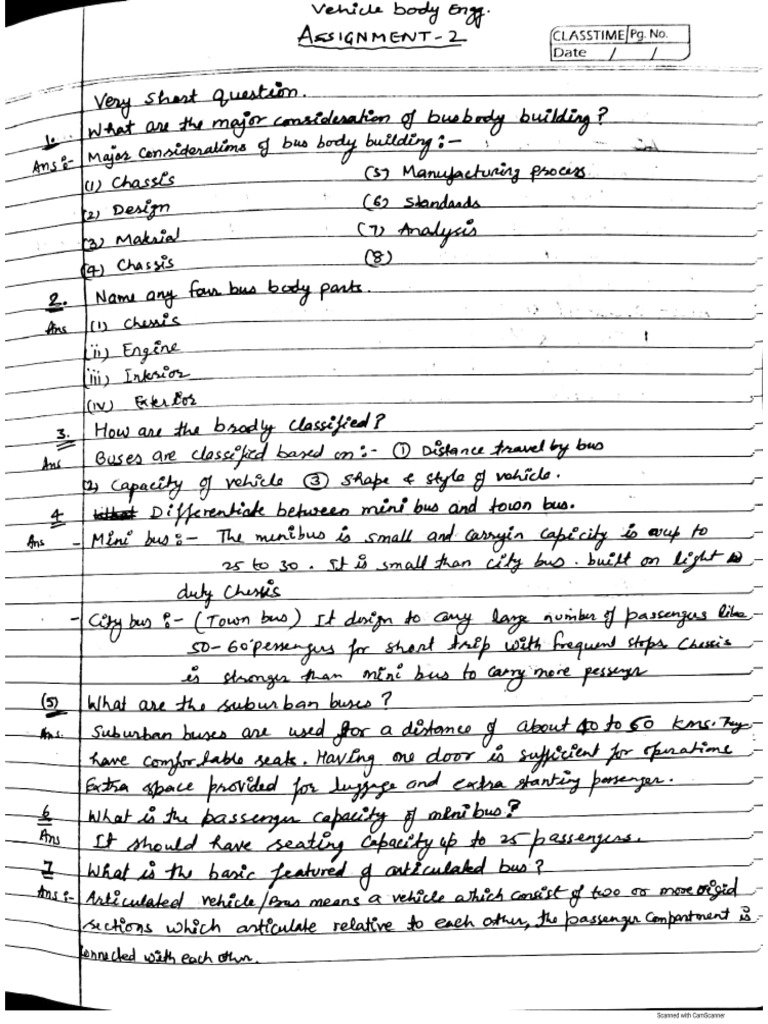 Vehicle body Engg.
ASSIGNMENT-2
CLASSTIME Pg. No.
Date / /
Very Short Question.
1. What are the major consideration of bus body building?
Ans:- Major Considerations of bus body building:-
(1) Chassis (5) Manufacturing process
(2) Design (6) Standards
(3) Material (7) Analysis
(4) Chassis (8)
2. Name any four bus body parts.
Ans (i) Chessis
(ii) Engine
(iii) Interior
(iv) Exterior
3. How are the brodly classified?
Ans Buses are classified based on:- (1) Distance travel by bus
(2) Capacity of vehicle (3) Shape & style of vehicle.
4 Differentiate between mini bus and town bus.
Ans - Mini bus:- The minibus is small and carryin capicity is up to
25 to 30. It is small than city bus. built on light
duty Chessis
- City bus:- (Town bus) It design to carry large number of passengers like
50-60 pessengers for short trip with frequent stops. Chessis
is stronger than mini bus to carry more pessenger
(5) What are the suburban buses?
Ans. Suburban buses are used for a distance of about 40 to 60 kms. They
have comfortable seats. Having one door is sufficient for operations
Extra space provided for luggage and extra stanting passenger.
6 What is the passenger capacity of minibus?
Ans It should have seating capacity up to 25 passengers.
7 What is the basic featured of articulated bus?
Ans:- Articulated vehicle/Bus means a vehicle which consist of two or more rigid
sections which articulate relative to each other, the passenger compartment is
connected with each other.
Scanned with CamScanner